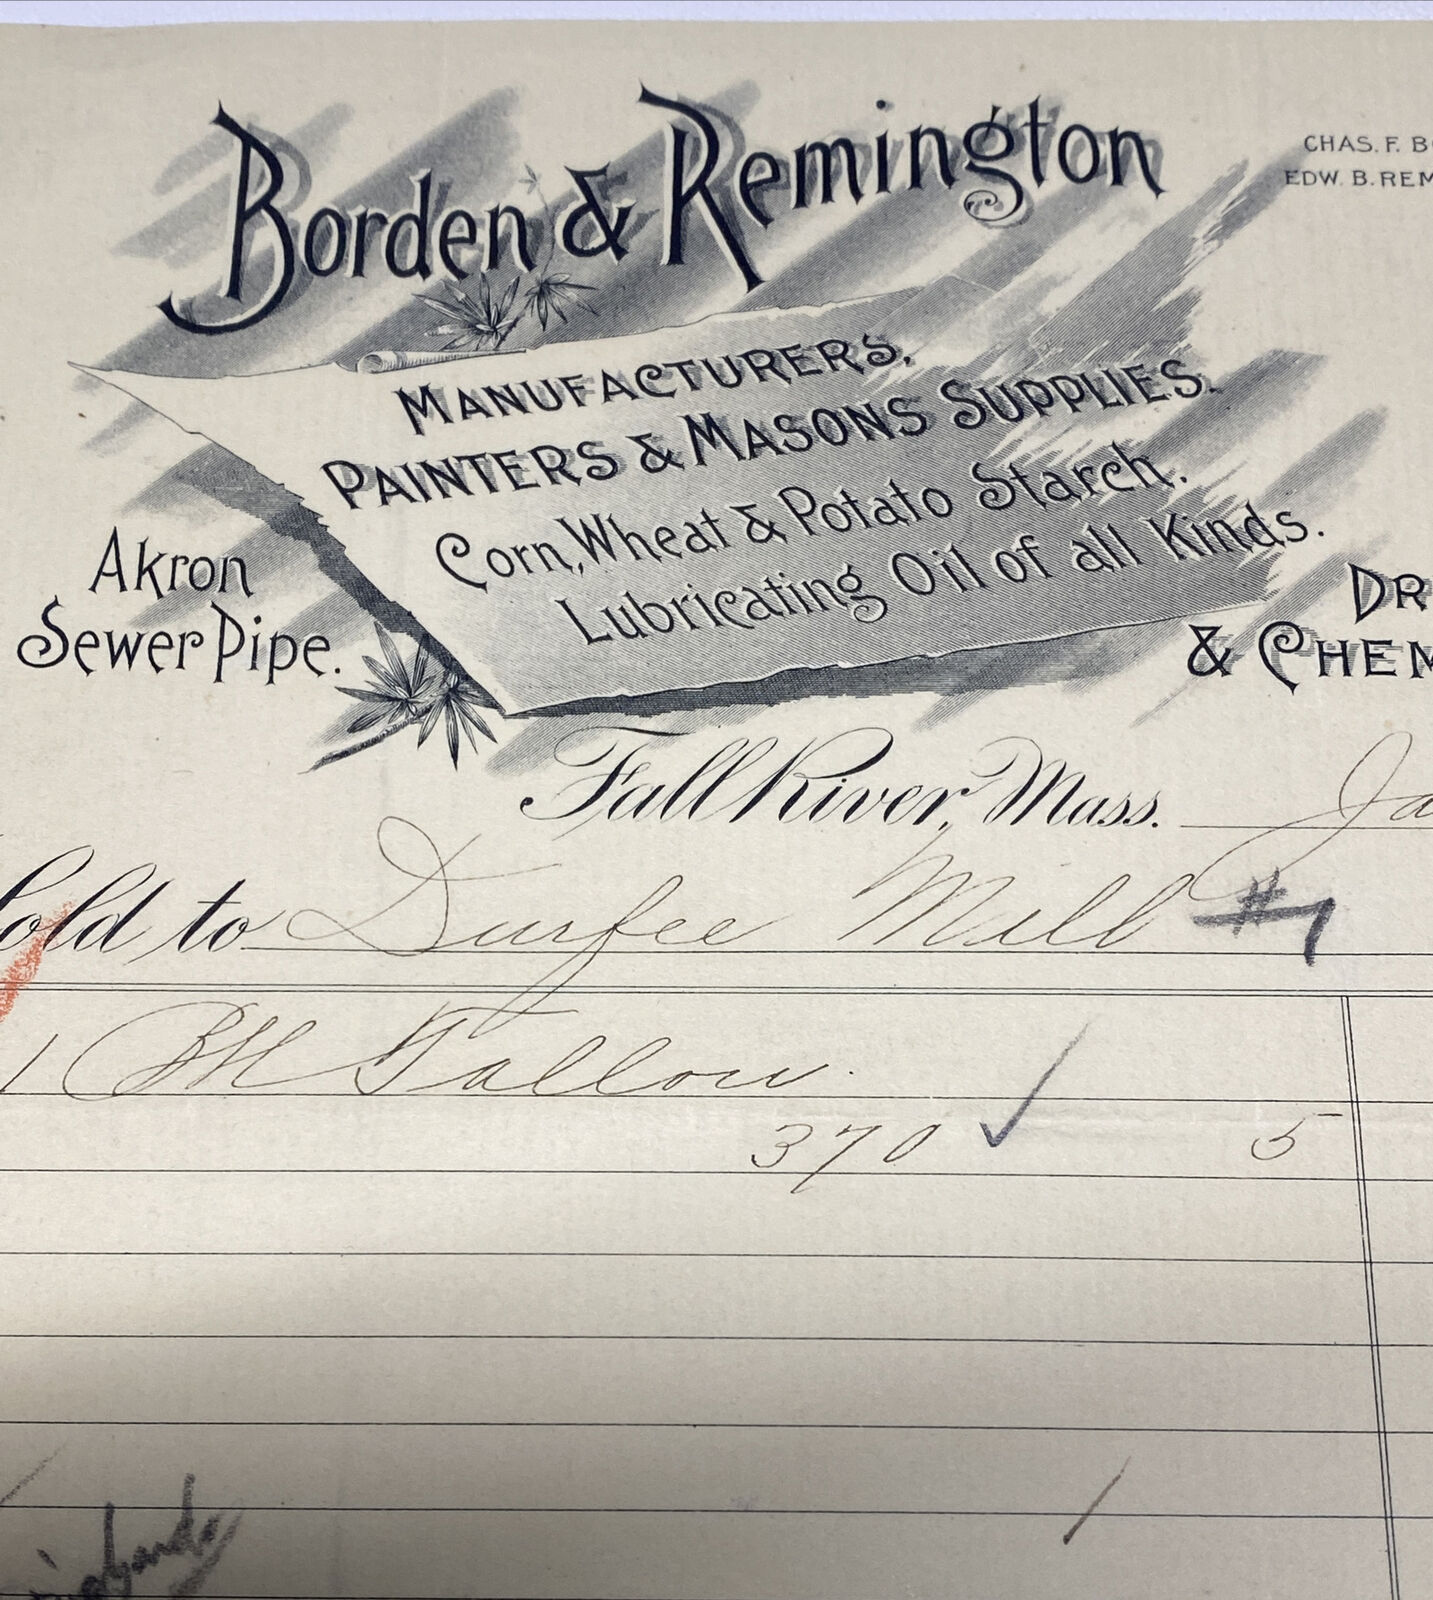 Borden & Remington
CHAS. F. B
EDW. B. REM
MANUFACTURERS,
PAINTERS & MASONS SUPPLIES.
Corn, Wheat & Potato Starch.
Lubricating Oil of all Kinds.
Akron
Sewer Pipe.
DR
& CHEM
Fall River, Mass. Ja
Sold to Durfee Mill #1
1 Bbl Tallow.
370 ✓ 5